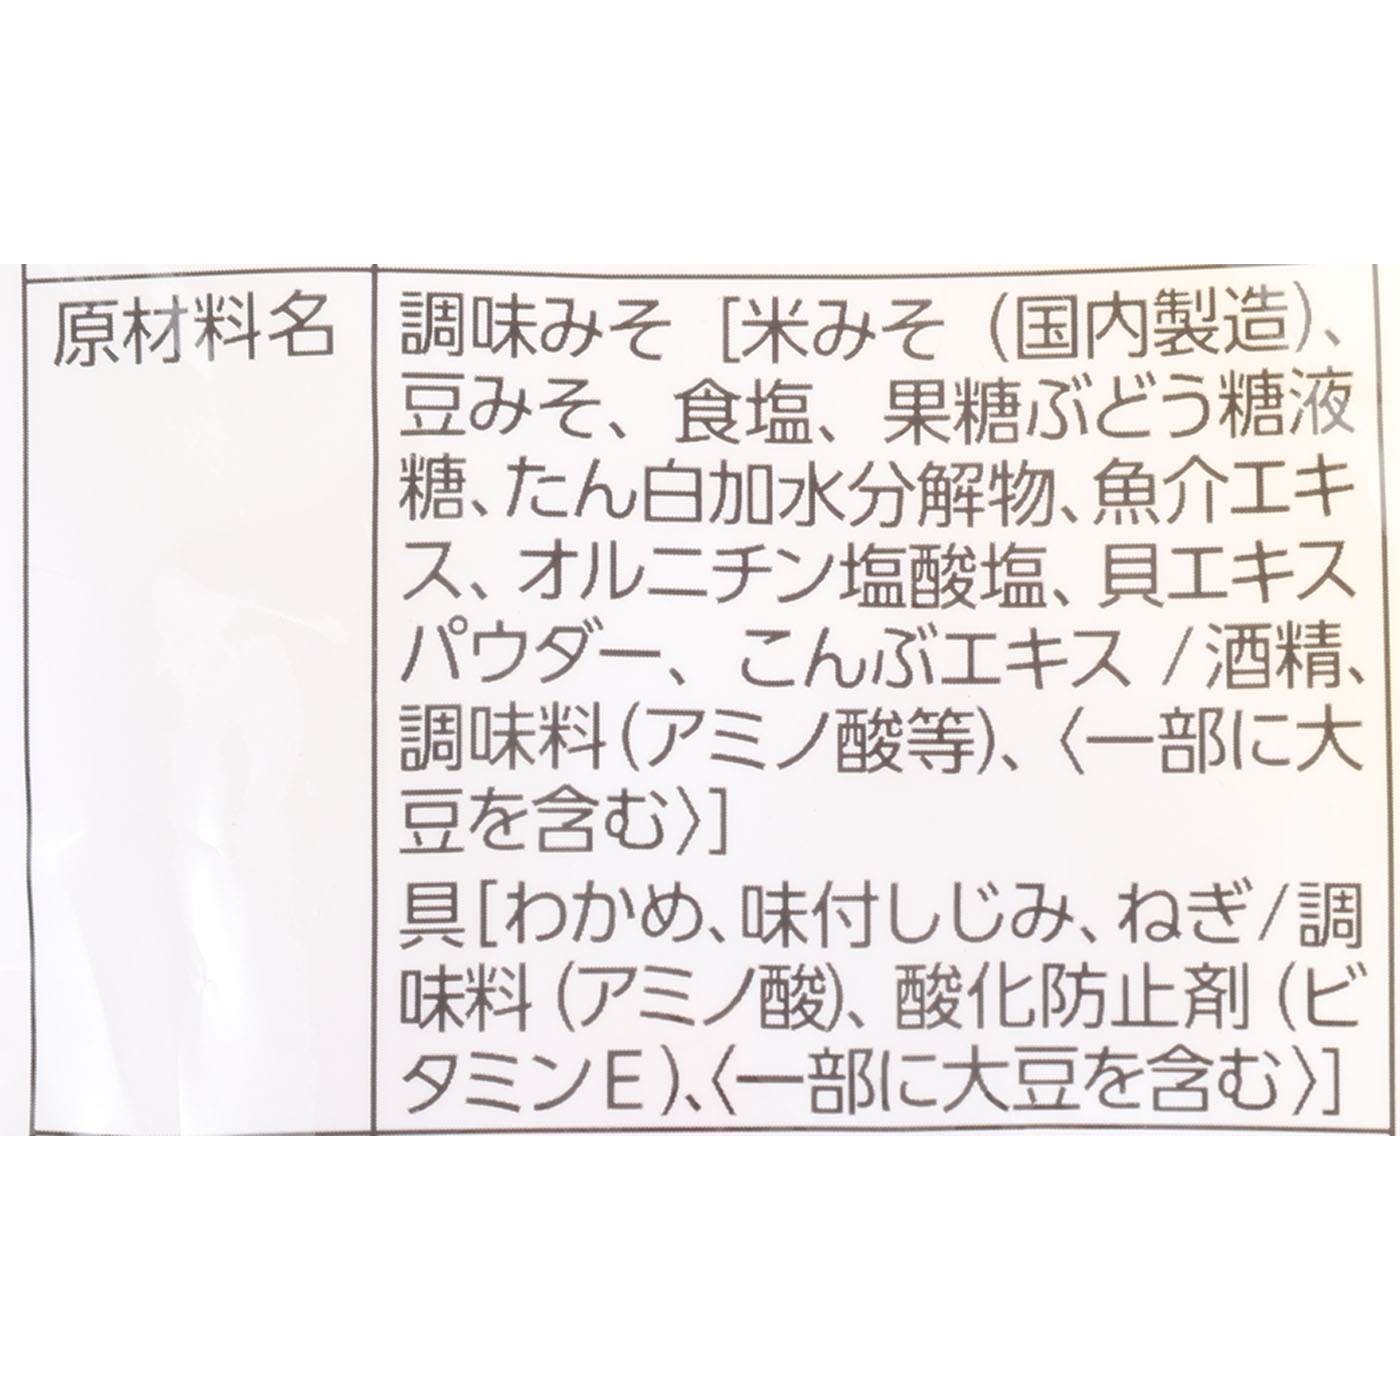 原材料名
調味みそ [米みそ (国内製造)、
豆みそ、食塩、果糖ぶどう糖液
糖、たん白加水分解物、魚介エキ
ス、オルニチン塩酸塩、貝エキス
パウダー、こんぶエキス/酒精、
調味料(アミノ酸等)、〈一部に大
豆を含む〉]
具[わかめ、味付しじみ、ねぎ/調
味料(アミノ酸)、酸化防止剤(ビ
タミンE)、〈一部に大豆を含む〉]